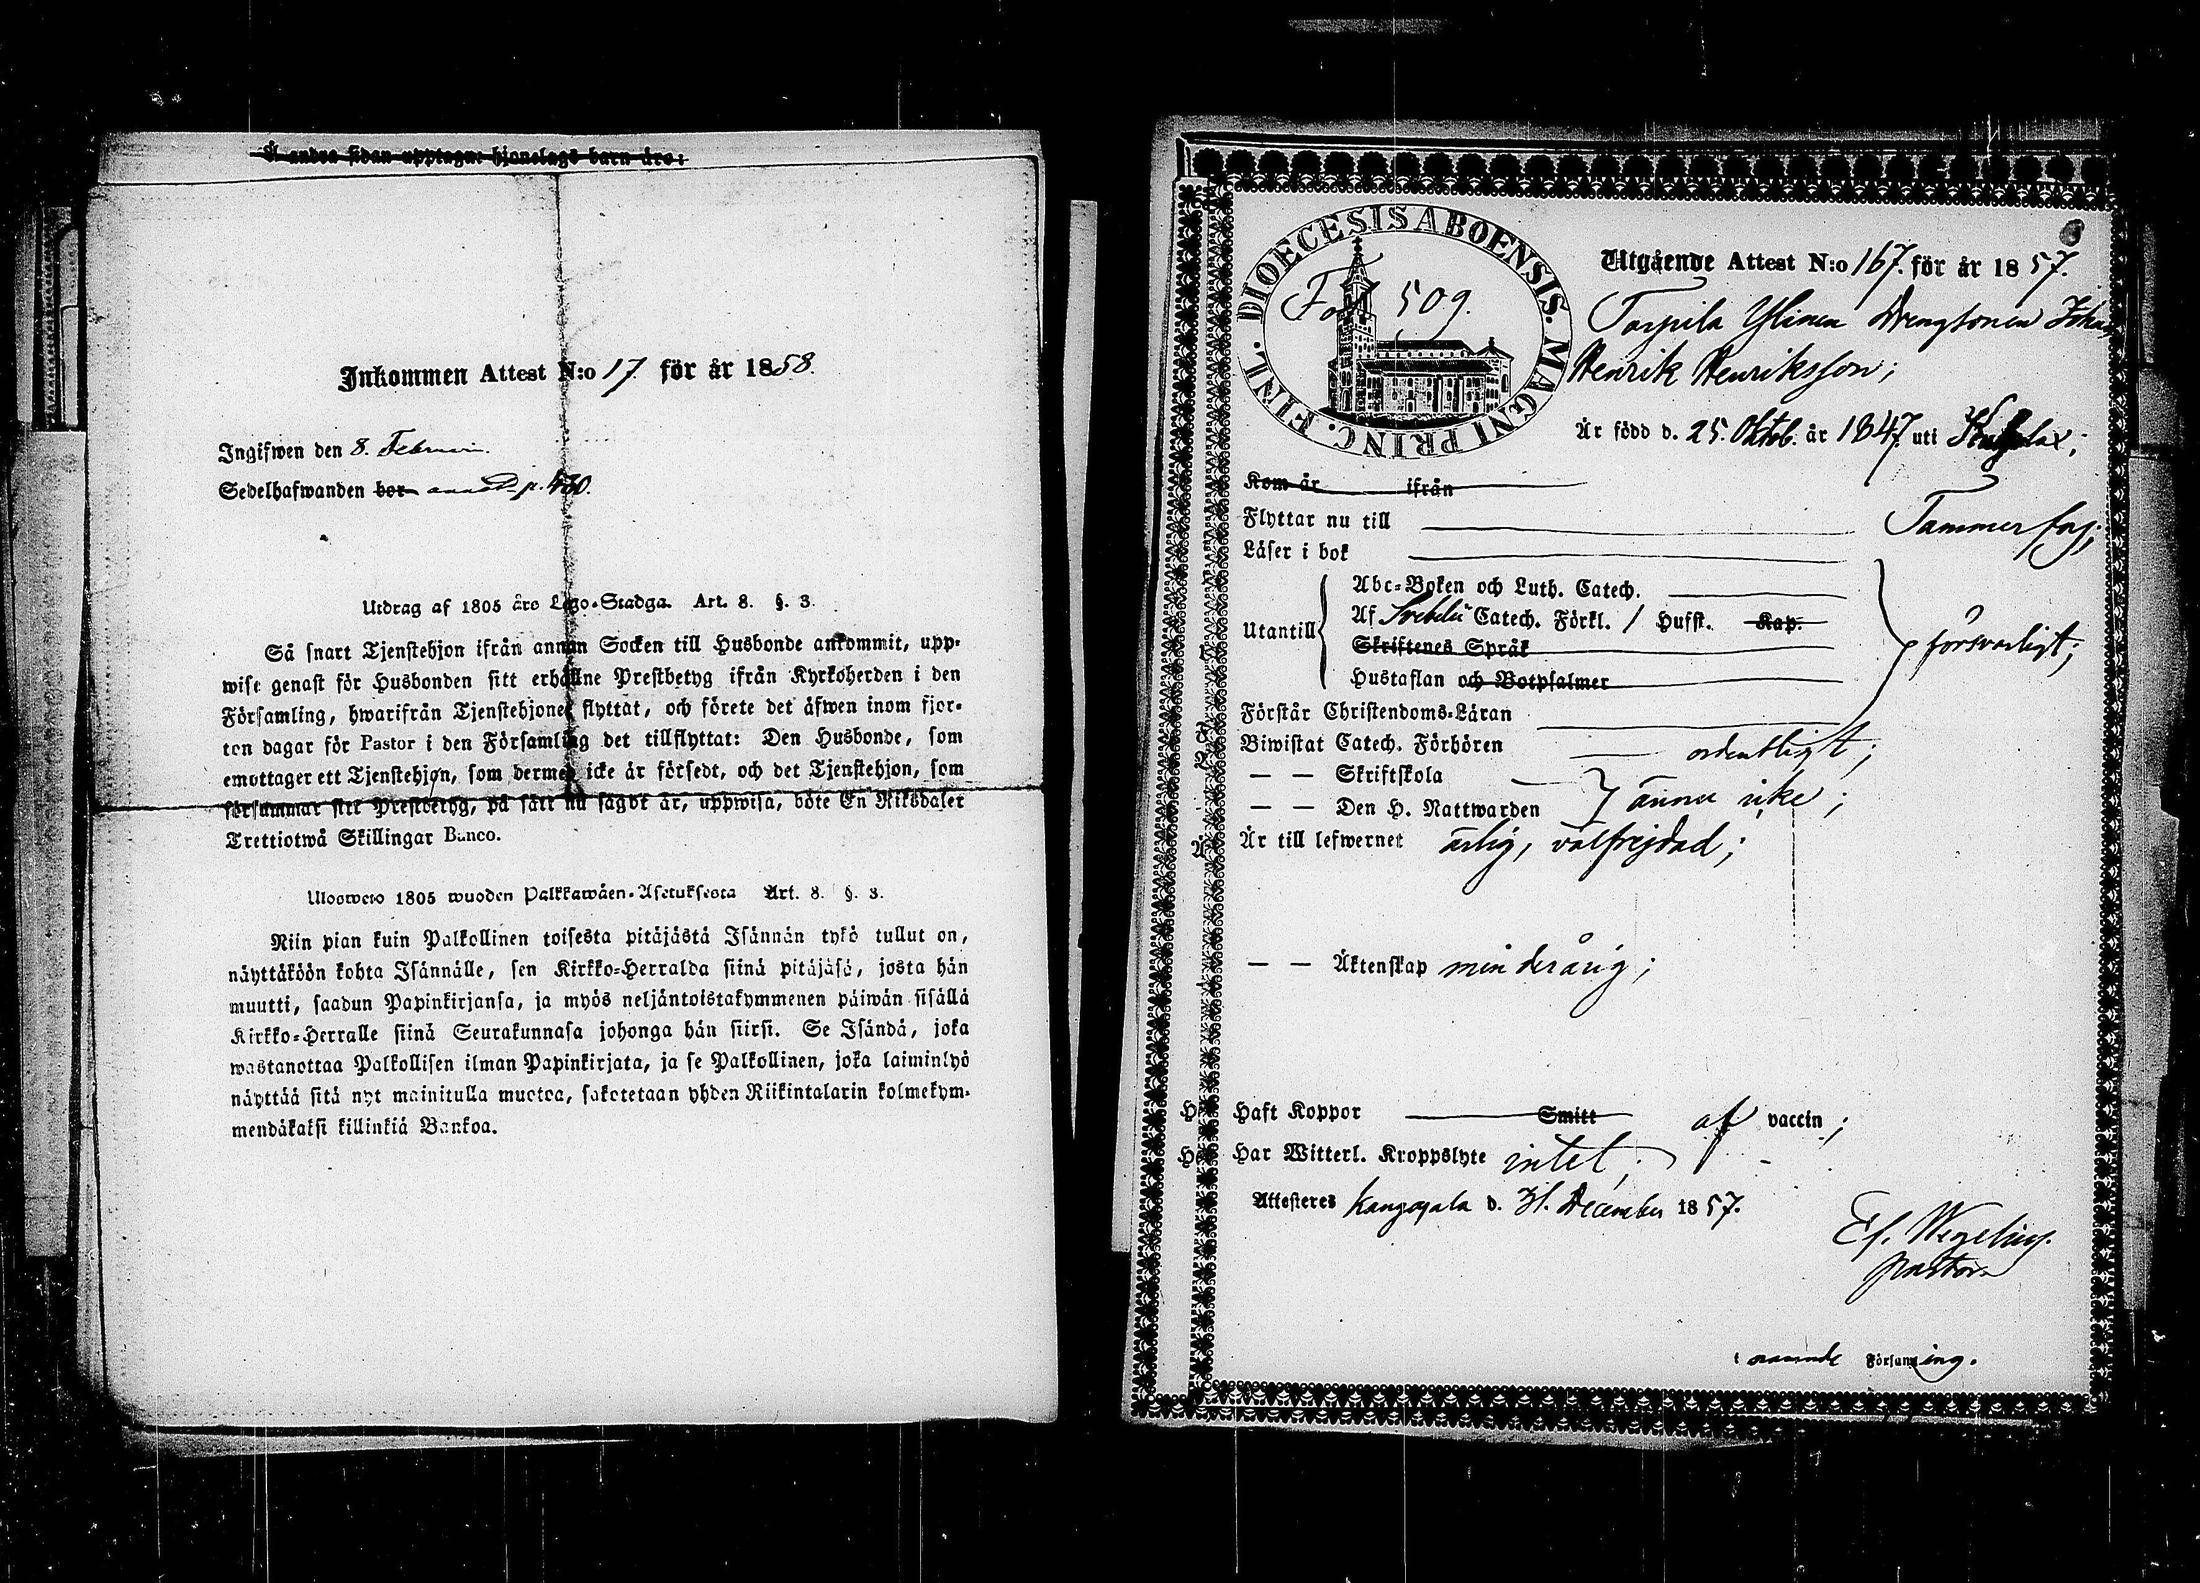 Å andra sidan upptagne hjonelags barn äro:
Inkommen Attest N:o 17 för år 1858.
Ingifwen den 8. Februari.
Sedelhafwanden bor p. 430.
Utdrag af 1805 års Lego-Stadga. Art. 8. §. 3.
Så snart Tjenstehjon ifrån annan Socken till Husbonde ankommit, upp-
wise genast för Husbonden sitt erhållne Prestbetyg ifrån Kyrkoherden i den
Församling, hwarifrån Tjenstehjonet flyttat, och förete det äfwen inom fjor-
ton dagar för Pastor i den Församling det tillflyttat: Den Husbonde, som
emottager ett Tjenstehjon, som dermed icke är försedt, och det Tjenstehjon, som
försummar sitt Prestbetyg, på sätt nu sagdt är, uppwisa, böte En Riksdaler
Trettiotwå Skillingar Banco.
Uloswero 1805 wuoden Palkkawäen-Asetuksesta Art. 8. §. 3.
Niin pian kuin Palkollinen toisesta pitäjästä Isännän tykö tullut on,
näyttäköön kohta Isännälle, sen Kirkko-Herralda siinä pitäjäsä, josta hän
muutti, saadun Papinkirjansa, ja myös neljäntoistakymmenen päiwän sisällä
Kirkko-Herralle siinä Seurakunnasa johonga hän siirsi. Se Isändä, joka
wastanottaa Palkollisen ilman Papinkirjata, ja se Palkollinen, joka laiminlyö
näyttää sitä nyt mainitulla muotoa, sakotetaan yhden Riikintalarin kolmekym-
mendäkaksi killinkiä Bankoa.
DIOECESIS ABOENSIS. MAGNI PRINC. FINL.
Fol 509.
Utgående Attest N:o 167. för år 1857.
Torpila Ylinen Drengsonen Johan
Henrik Henriksson;
Är född d. 25. Oktob. år 1847. uti
Kom år ifrån
Flyttar nu till Tammerfors;
Läser i bok
Utantill
Abc-Boken och Luth. Catech.
Af Svebelii Catech. Förkl. / Hufst. Kap.
Skriftenes Språk
Hustaflan och Botpsalmer
försvarligt;
Förstår Christendoms-Läran
Biwistat Catech. Förhören ordentligt;
— — Skriftskola
— — Den H. Nattwarden ännu icke;
Är till lefwernet ärlig, välfrejdad;
— — Äktenskap minderårig;
Haft Koppor Smitt af vaccin;
Har Witterl. Kroppslyte intet;
Attesteres Kangasala d. 31. December 1857.
Ef. Wegelius.
pastor
i ofvannämnde Församling.